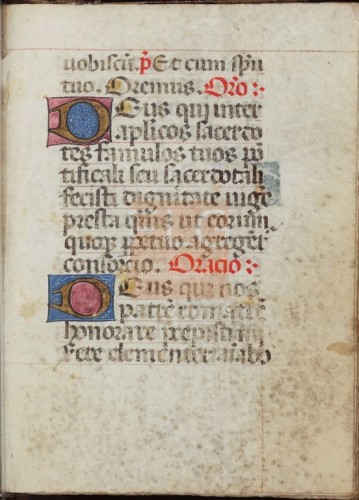 uobiscū. p̄ Et cum spū
tuo. Oremus. Orō :·
Deus qui inter
aplicos sacerdo
tes famulos tuos pō
tificali seu sacerdotali
fecisti dignitate uige
presta qm̄s ut eorum
quoqꝫ ppetuo agregeť
consorcio. Oraciō :·
Deus qui nos
patrē et matrē
honorare precepistī